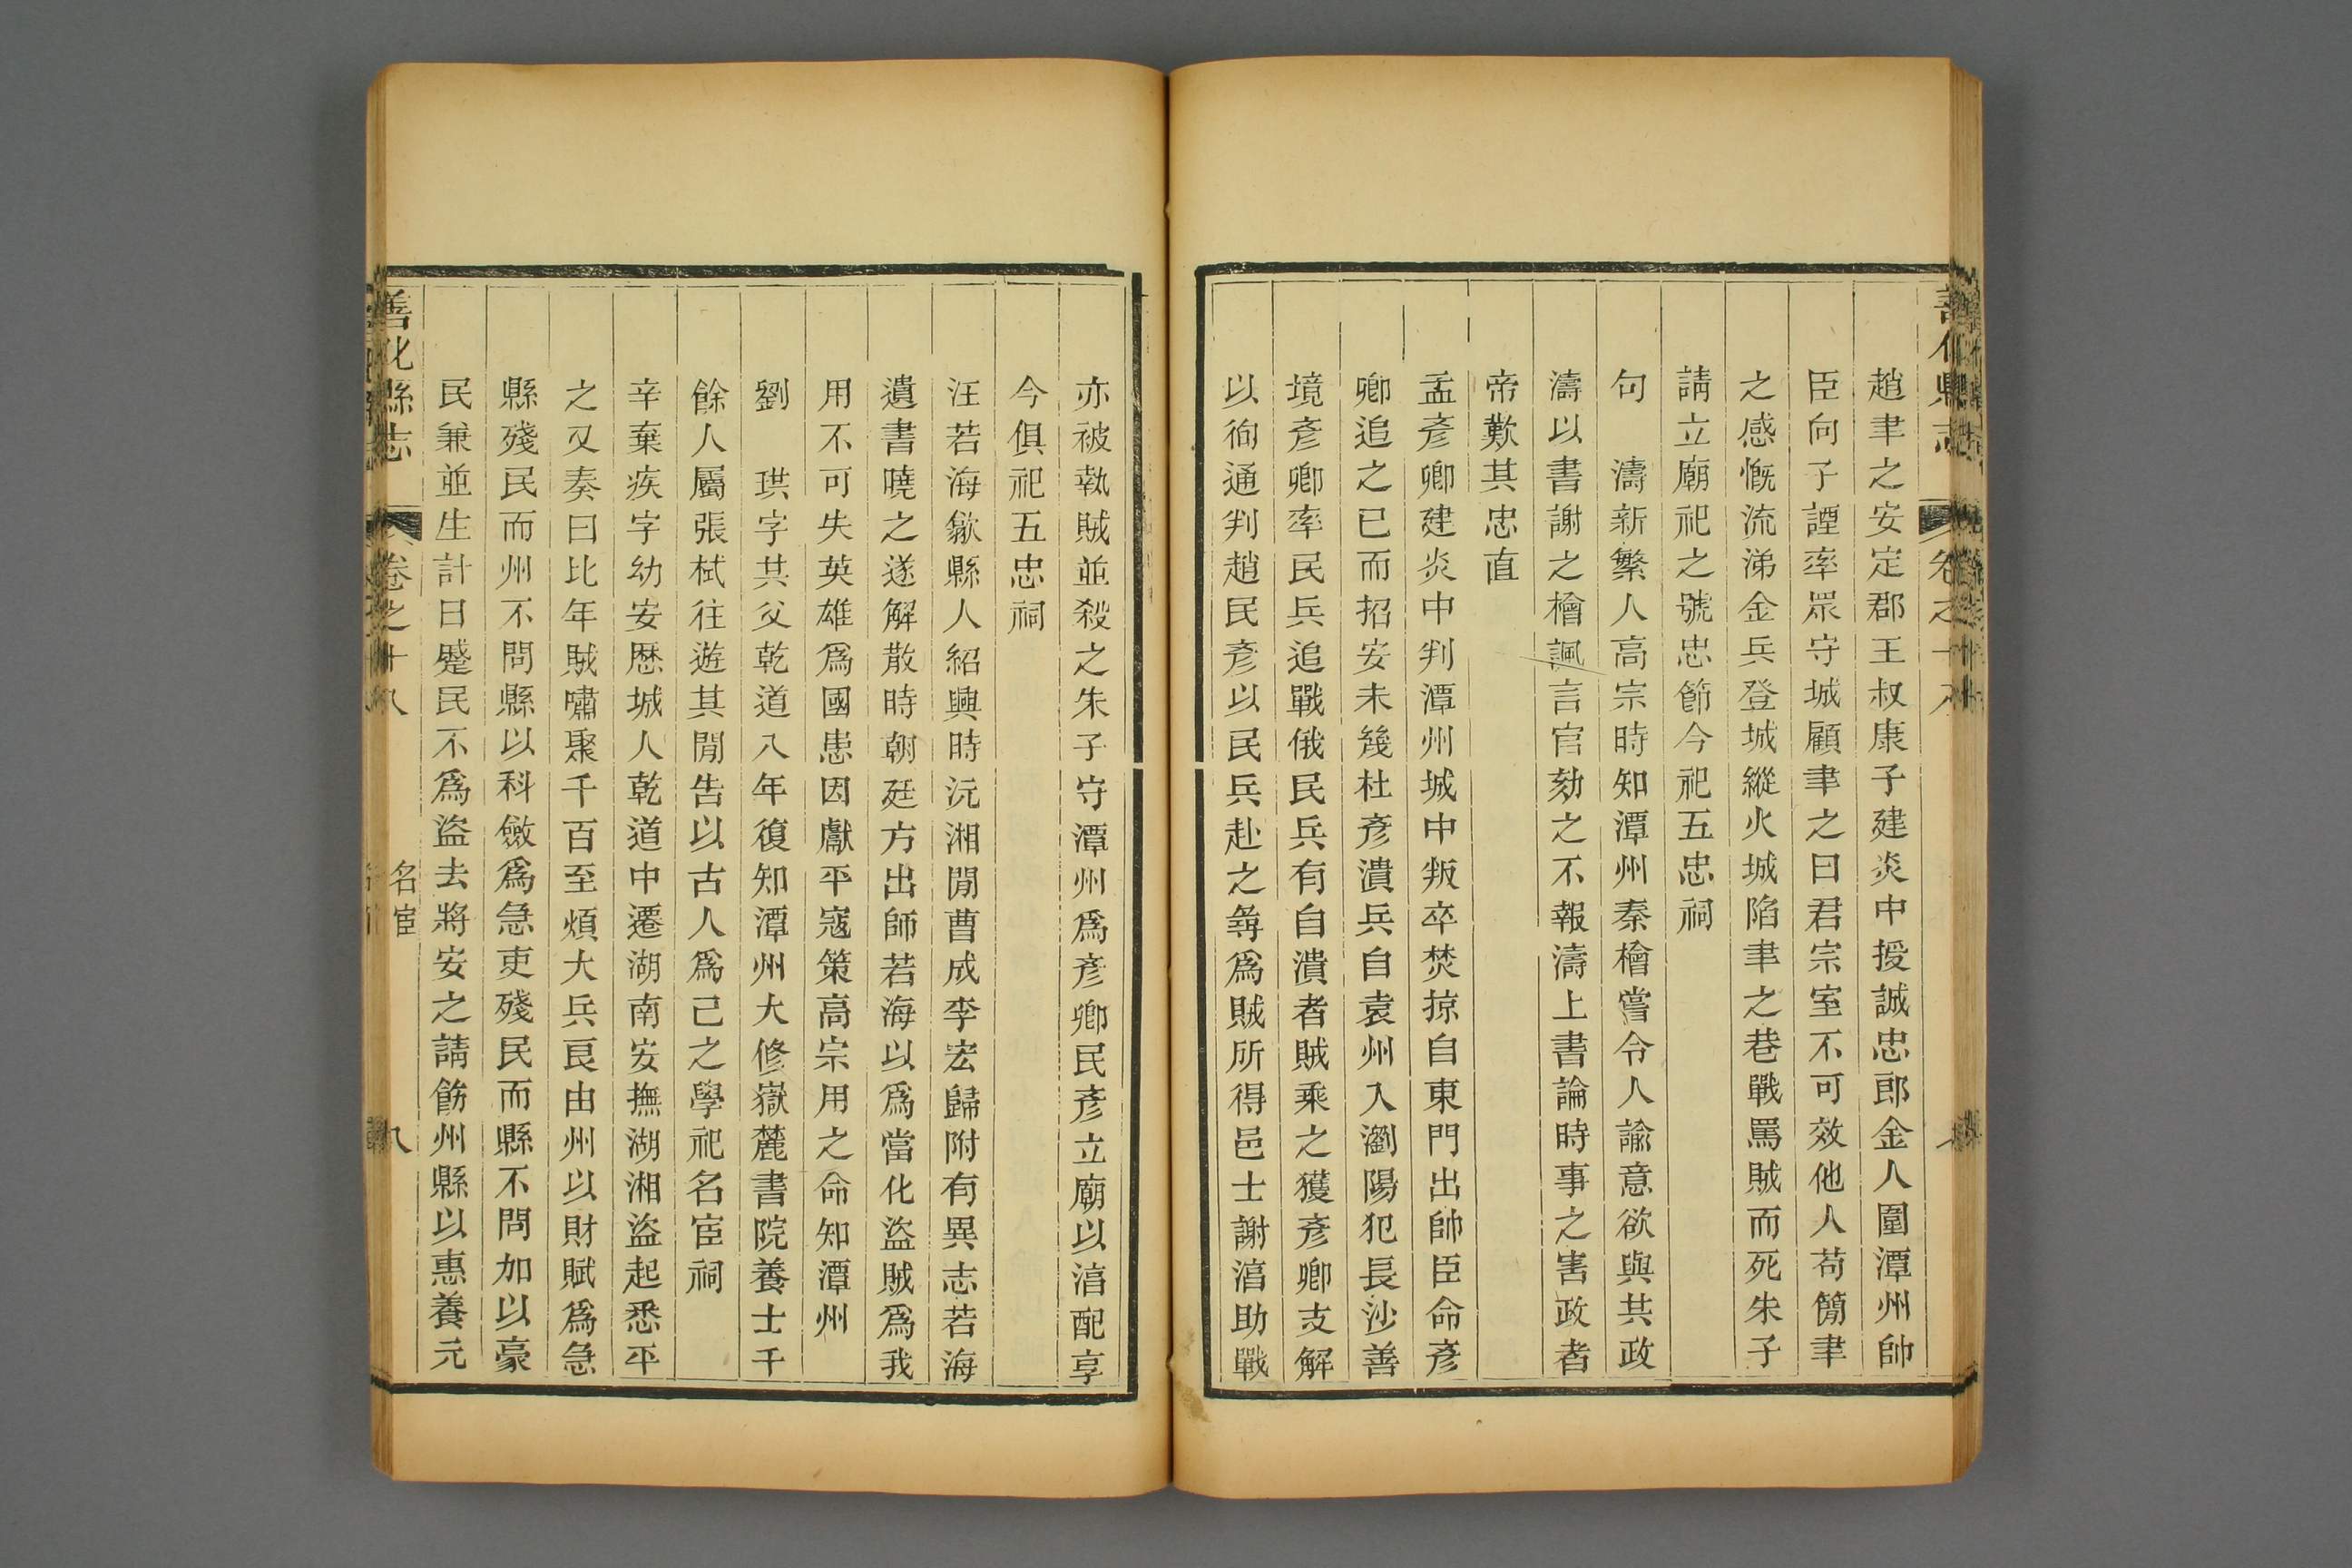 趙聿之安定郡王叔康子建炎中授誠忠郎金人圍潭州帥
臣向子諲率眾守城顧聿之曰君宗室不可效他人苟簡聿
之感慨流涕金兵登城縱火城陷聿之巷戰罵賊而死朱子
請立廟祀之號忠節今祀五忠祠
句 濤新繁人高宗時知潭州秦檜嘗令人諭意欲與共政
濤以書謝之檜諷言官劾之不報濤上書論時事之害政者
帝歎其忠直
孟彥卿建炎中判潭州城中叛卒焚掠自東門出帥臣命彥
卿追之已而招安未幾杜彥潰兵自袁州入瀏陽犯長沙善
境彥卿率民兵追戰俄民兵有自潰者賊乘之獲彥卿支解
以徇通判趙民彥以民兵赴之尋爲賊所得邑士謝淯助戰
亦被執賊並殺之朱子守潭州爲彥卿民彥立廟以淯配享
今俱祀五忠祠
汪若海歙縣人紹興時沅湘閒曹成李宏歸附有異志若海
遺書曉之遂解散時朝廷方出師若海以爲當化盜賊爲我
用不可失英雄爲國患因獻平寇策高宗用之命知潭州
劉 珙字共父乾道八年復知潭州大修嶽麓書院養士千
餘人屬張栻往遊其閒告以古人爲己之學祀名宦祠
辛棄疾字幼安歷城人乾道中遷湖南安撫湖湘盜起悉平
之又奏曰比年賊嘯聚千百至煩大兵良由州以財賦爲急
縣殘民而州不問縣以科斂爲急吏殘民而縣不問加以豪
民兼並生計日蹙民不爲盜去將安之請飭州縣以惠養元
善化縣志 卷之十八 名宦 八